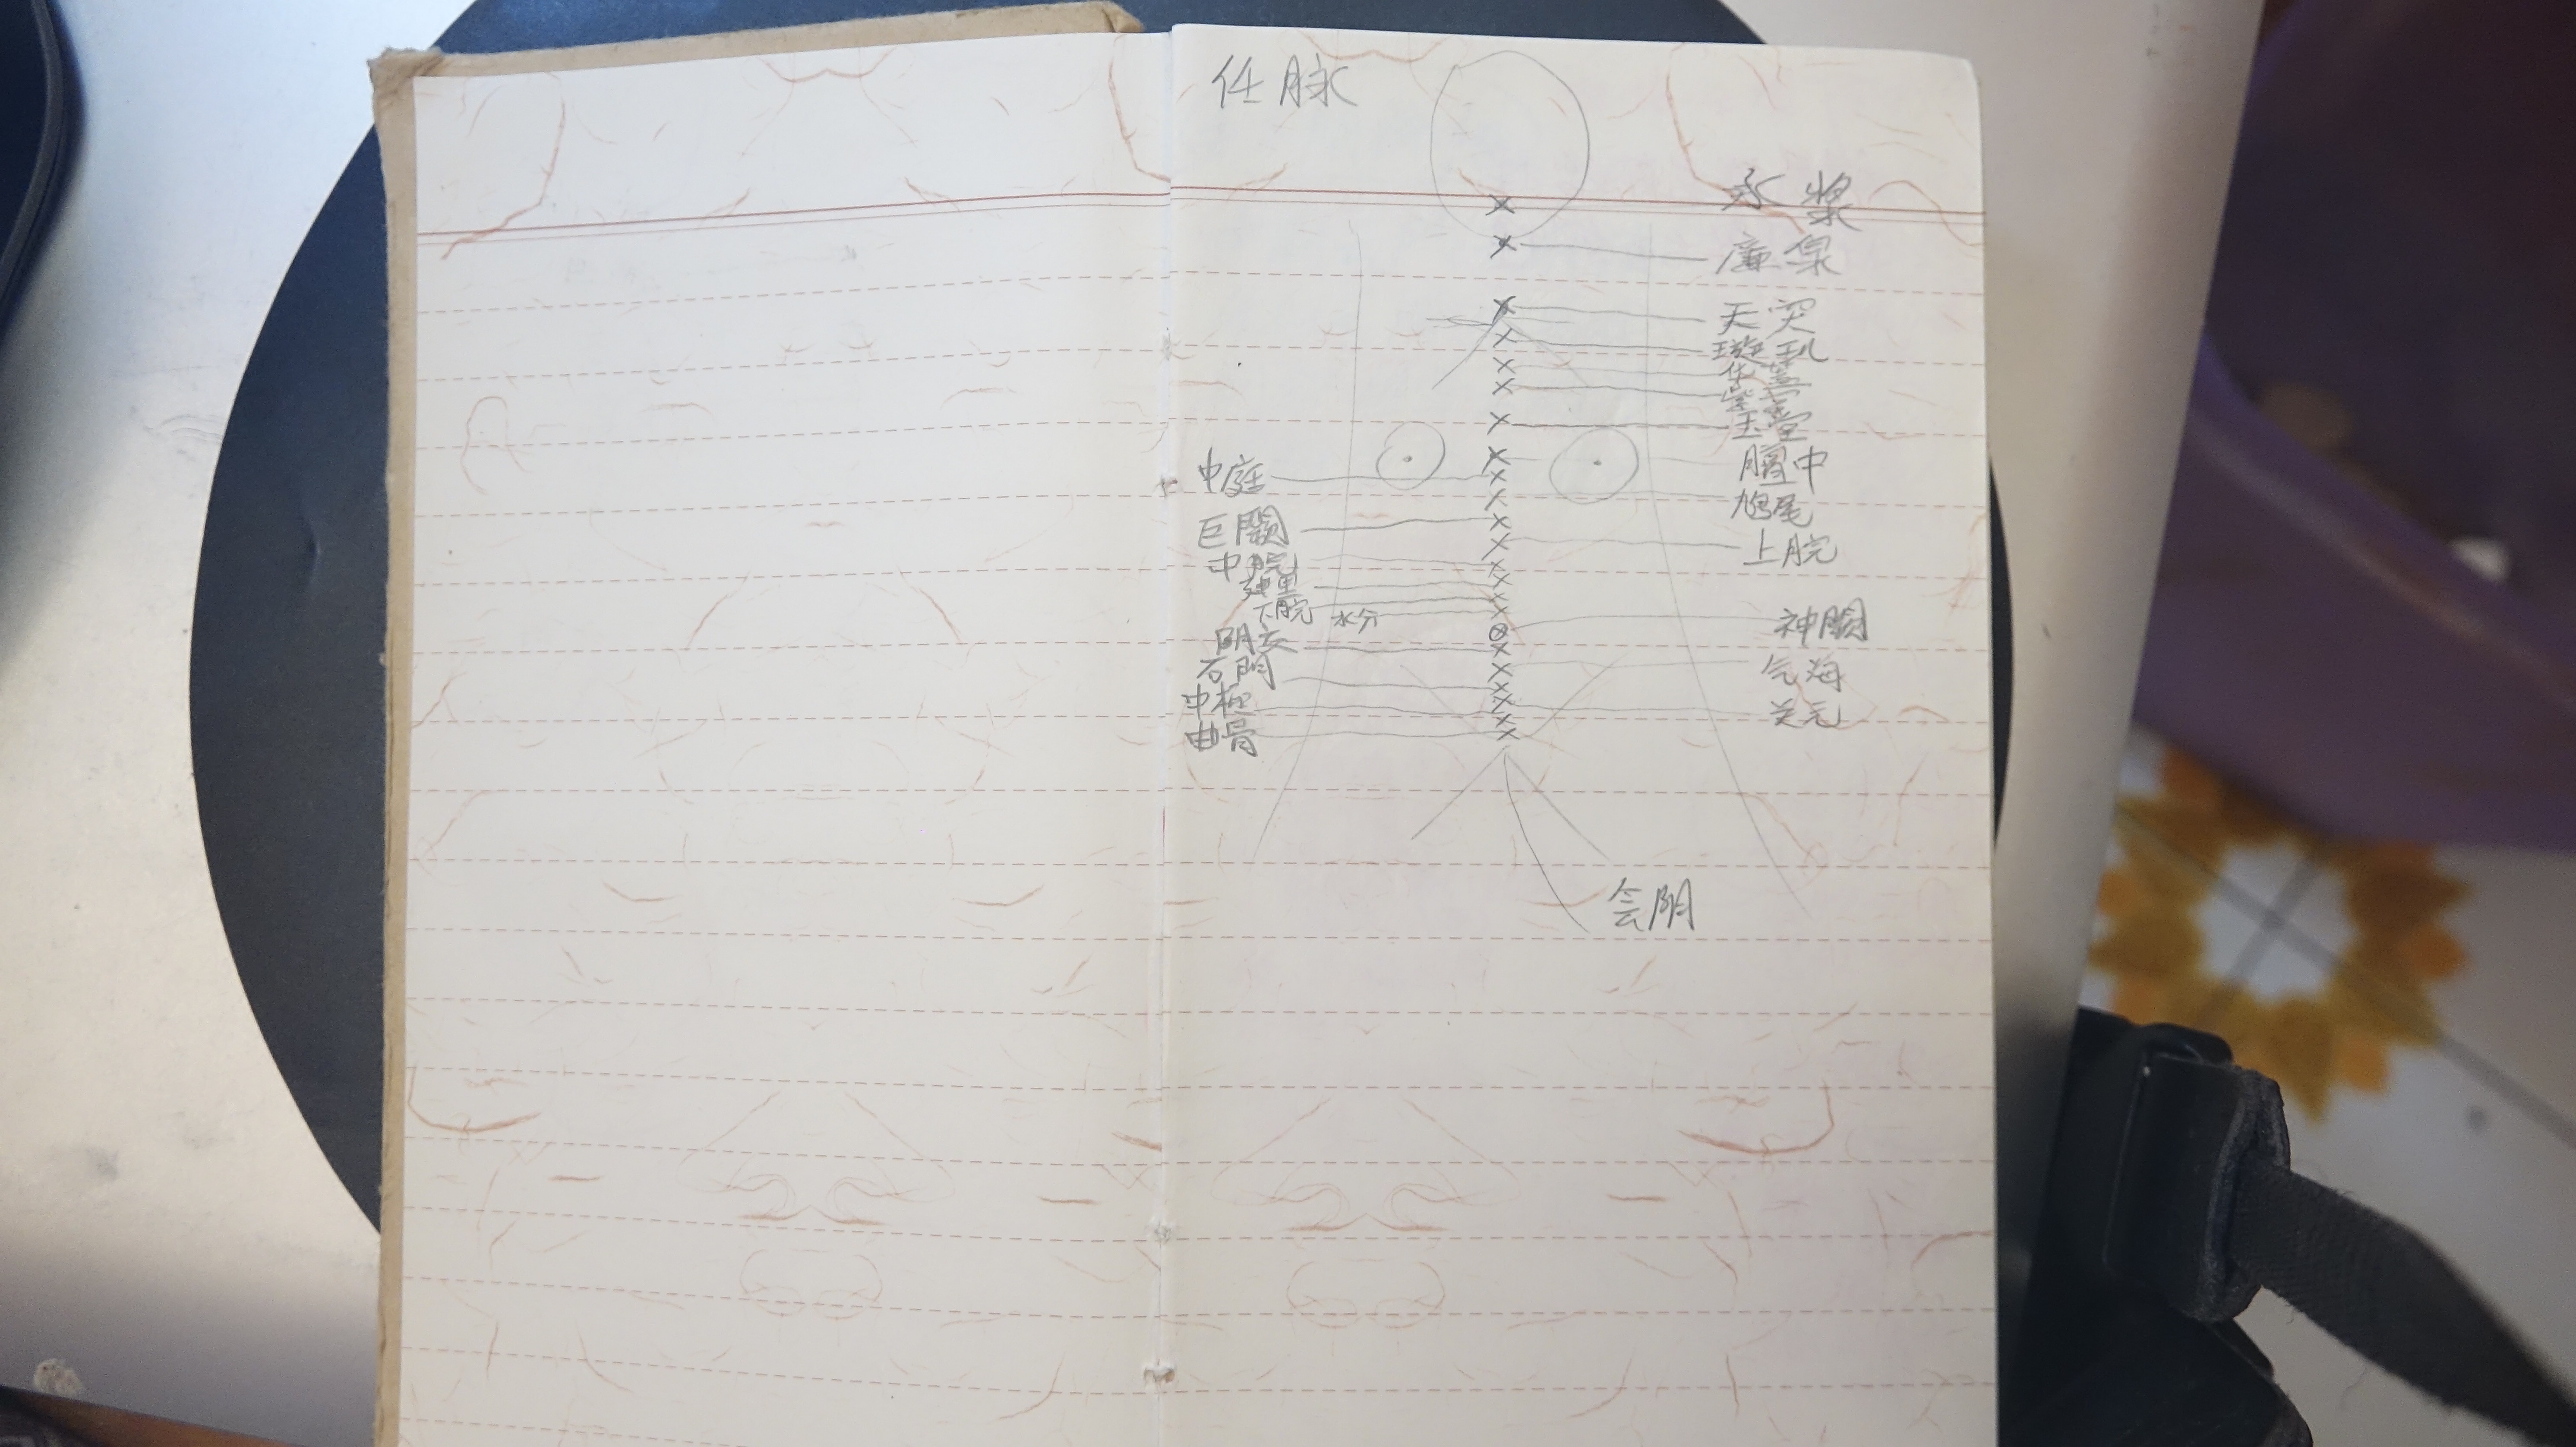 任脉
承漿
廉泉
天突
璇玑
华蓋
紫宮
玉堂
膻中
中庭
鳩尾
巨闕
上脘
中脘
建里
下脘
水分
神闕
阴交
气海
石門
关元
中極
曲骨
会阴